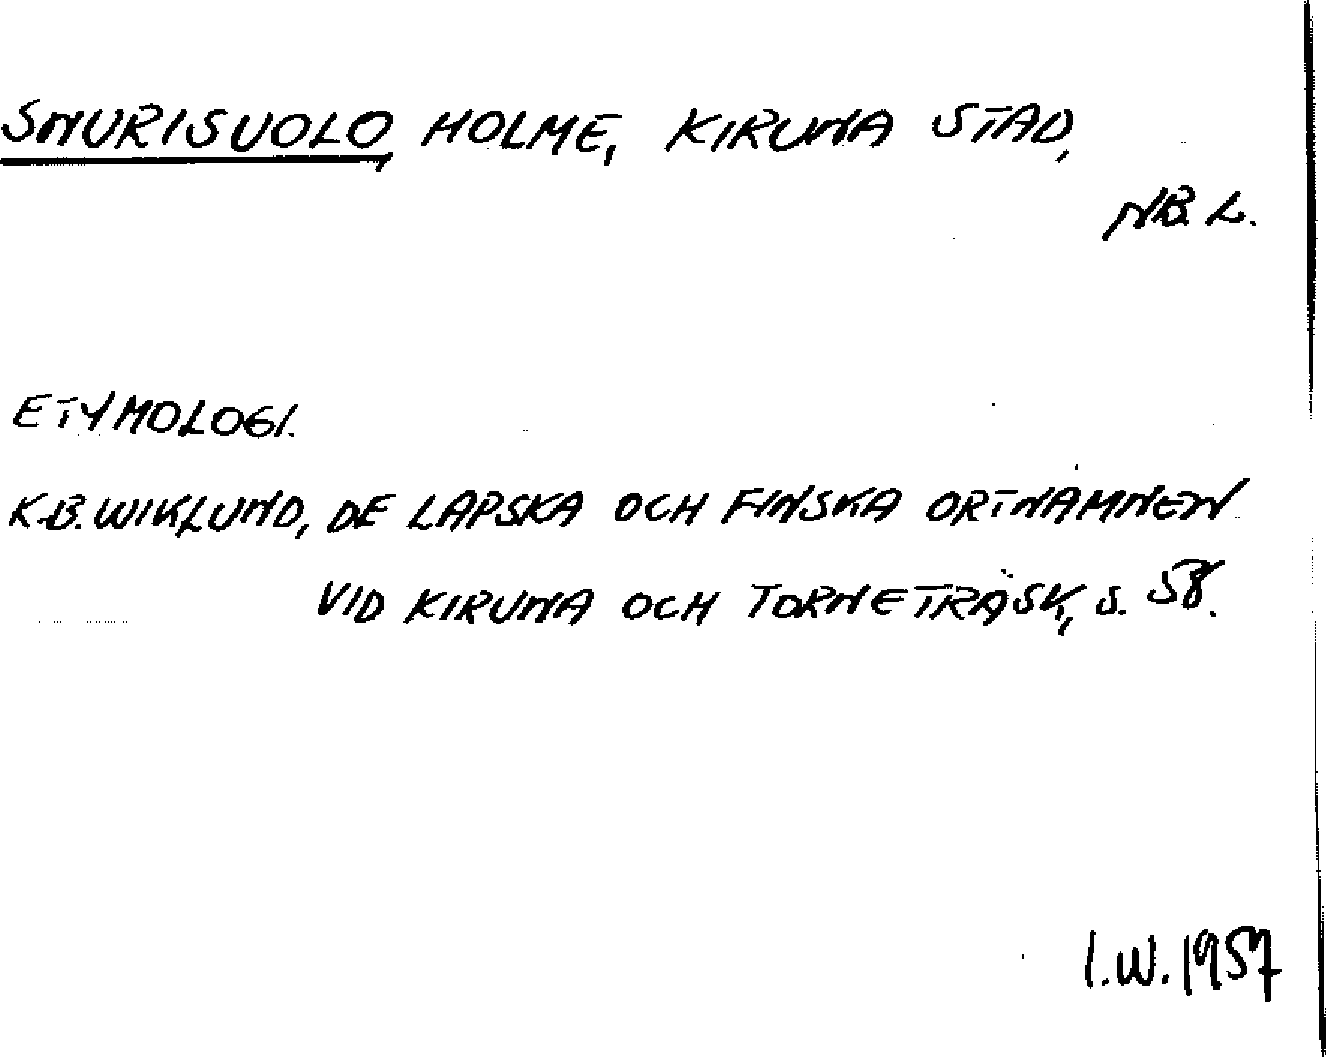 SNURISUOLO, HOLME, KIRUNA STAD,
NB. L.
ETYMOLOGI.
K.B. WIKLUND, DE LAPSKA OCH FINSKA ORTNAMNEN
VID KIRUNA OCH TORNETRÄSK, S. 58.
I.W. 1957